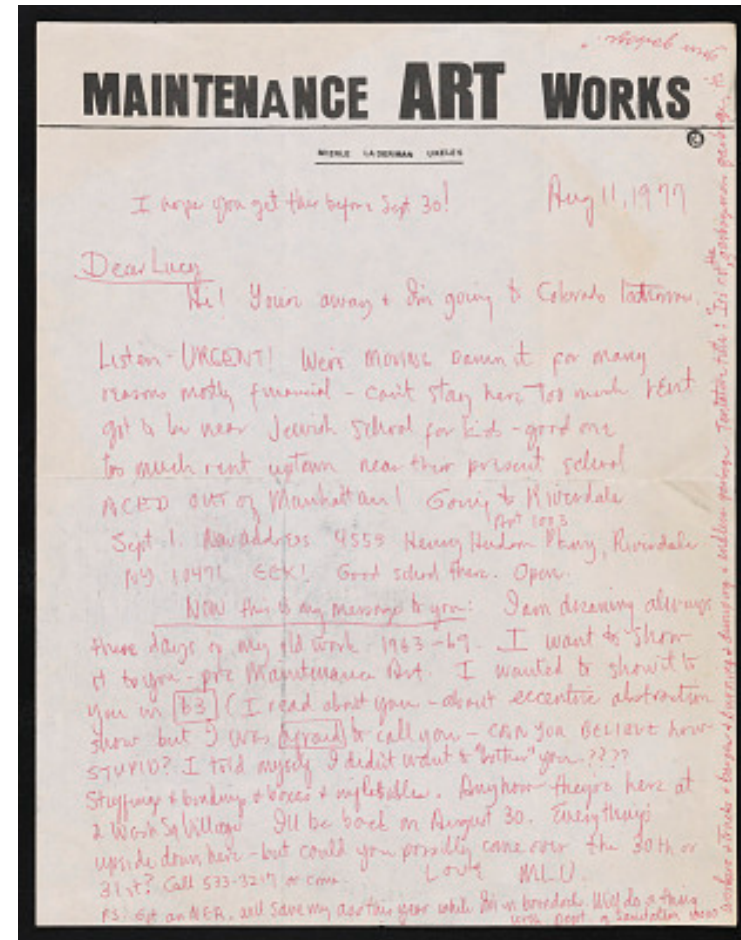 MAINTENANCE ART WORKS
MIERLE LADERMAN UKELES
I hope you get this before Sept 30!
Aug 11, 1977
Dear Lucy
Hi! You're away + I'm going to Colorado tomorrow.
Listen - URGENT! We're MOVING Damn it for many
reasons mostly financial - can't stay here too much rent
got to be near Jewish School for kids - good one
too much rent uptown near their present school
ACED OUT of Manhattan! Going to Riverdale
Apt 1003
Sept 1. New address 4555 Henry Hudson Pkwy, Riverdale
NY 10471 EEK! Good school there. Open.
NOW this is my message to you: I am dreaming always
these days of my old work - 1963-69. I want to show
it to you - pre Maintenance Art. I wanted to show it to
you in 63 (I read about you - about eccentric abstraction
show but I was afraid to call you - CAN YOU BELIEVE how
STUPID? I told myself I didn't want to "bother" you ????
Stuffings + binding + boxes + inflatables. Anyhow they're here at
2 Wash Sq Village I'll be back on August 30. Everything's
upside down here - but could you possibly come over the 30th or
31st? Call 533-3217 or come.
Love MLU.
PS. Got an NEA. will save my this year while I'm in. Will do a thing
with Dept. of Sanitation
workers + trucks + barges + burning + dumping + endless garbage. Tentative title: "It's not the garbageman's garbage, it's
your garbage."